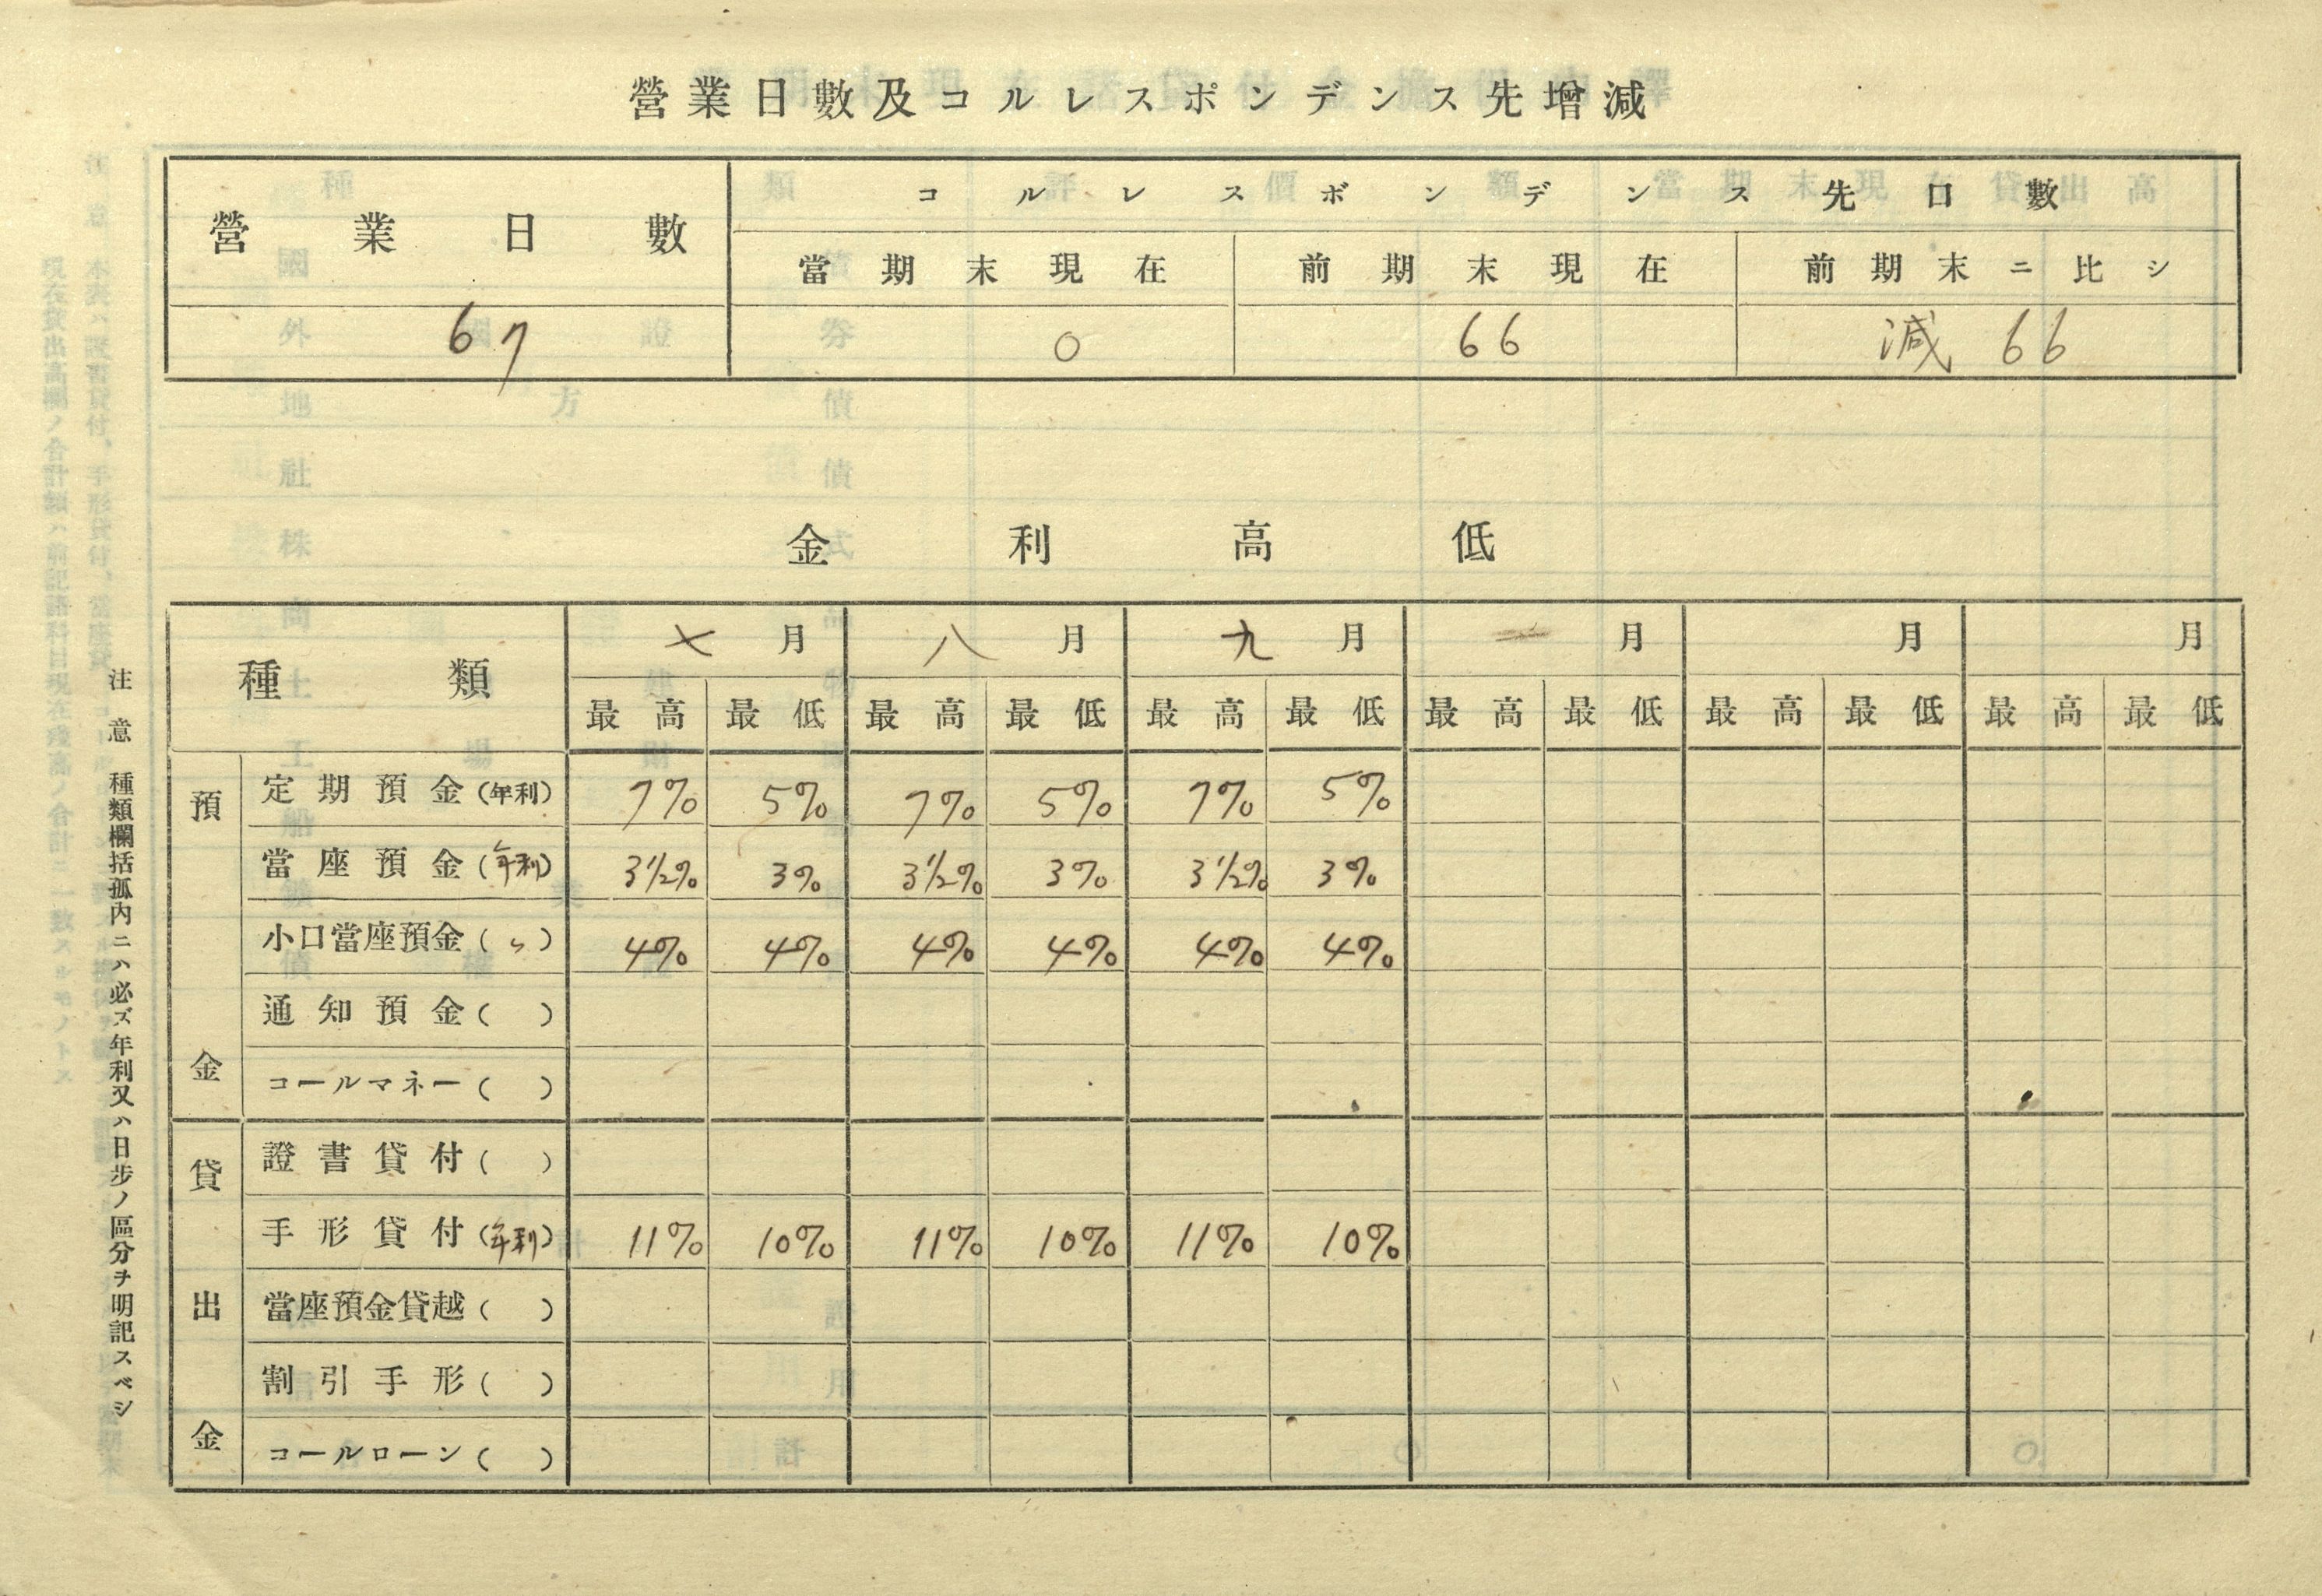 營業日數及コルレスポンデンス先增減
營業日數 コルレスポンデンス先口數
當期末現在 前期末現在 前期末ニ比シ
67 0 66 減 66
金利高低
種類 七月 八月 九月 月 月 月
最高 最低 最高 最低 最高 最低 最高 最低 最高 最低 最高 最低
預金
定期預金(年利) 7% 5% 7% 5% 7% 5%
當座預金(年利) 3½% 3% 3½% 3% 3½% 3%
小口當座預金(〃) 4% 4% 4% 4% 4% 4%
通知預金( )
コールマネー( )
貸出金
證書貸付( )
手形貸付(年利) 11% 10% 11% 10% 11% 10%
當座預金貸越( )
割引手形( )
コールローン( )
注意 種類欄括弧內ニハ必ズ年利又ハ日步ノ區分ヲ明記スベシ